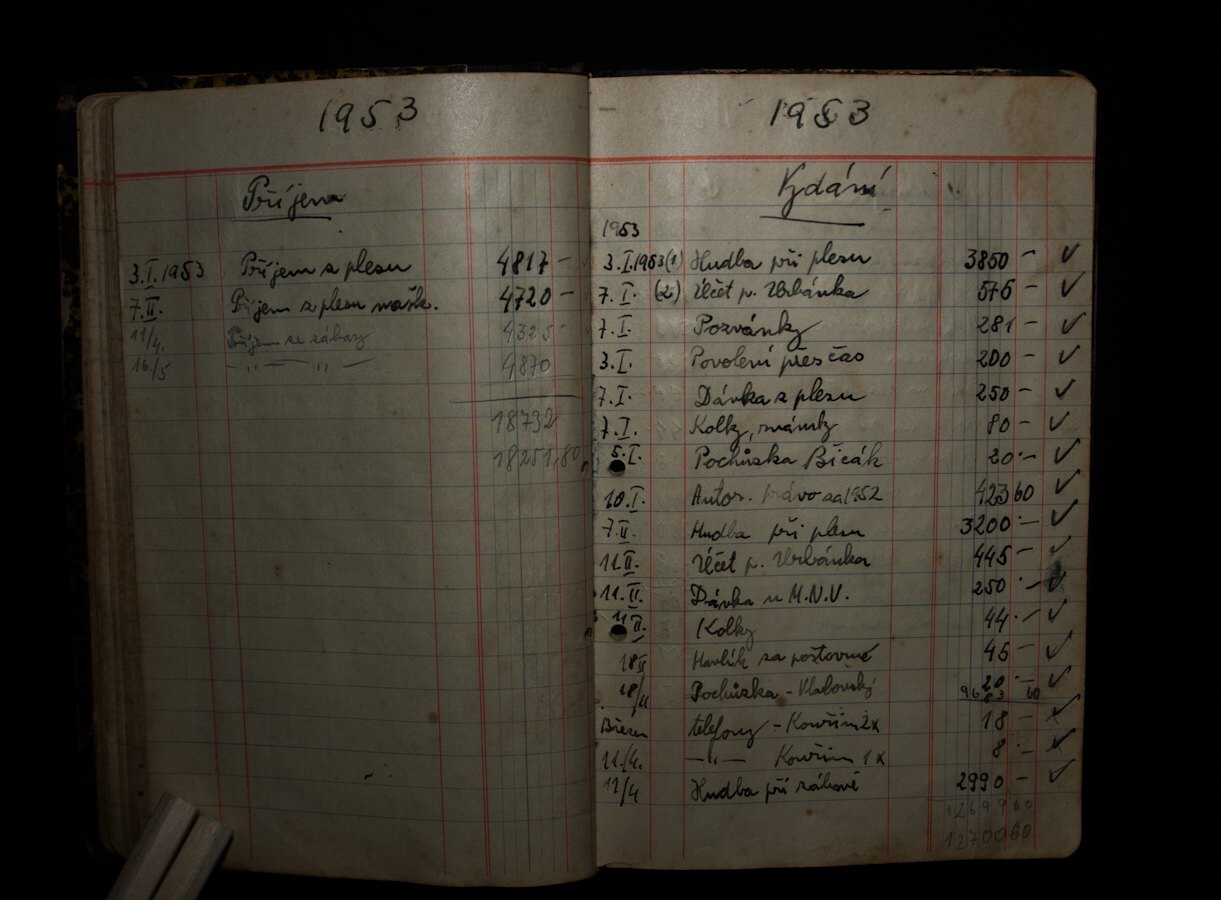 1953
Příjem
3.I.1953 Příjem z plesu 4817 –
7.II. Příjem z plesu mašk. 4720 –
11/4. Příjem ze zábavy 4325 –
16./5 – „ – „ – 4870
18732
18251,80
1953
Vydání
1953
3.I.1953 (1) Hudba při plesu 3850 – ✓
7.I. (2) Účet p. Urbánka 576 – ✓
7.I. Pozvánky 281 – ✓
3.I. Povolení přes čas 200 – ✓
7.I. Dávka z plesu 250 – ✓
7.I. Kolky, známky 80 – ✓
5.I. Pochůzka Bičák 20.– ✓
10.I. Autor. právo za 1952 423 60 ✓
7.II. Hudba při plesu 3200.– ✓
11.II. Účet p. Urbánka 445 – ✓
11.II. Dávka u M.N.V. 250.– ✓
11.II. Kolky 44.– ✓
18 II Havlík za poštovné 45 – ✓
18/II Pochůzka – 20.– ✓
9683 60
Březen telefony – Kouřim 2x 18 – ✓
11./4. – „ – Kouřim 1x 8.– ✓
11/4 Hudba při zábavě 2990 – ✓
12699 60
12700 60